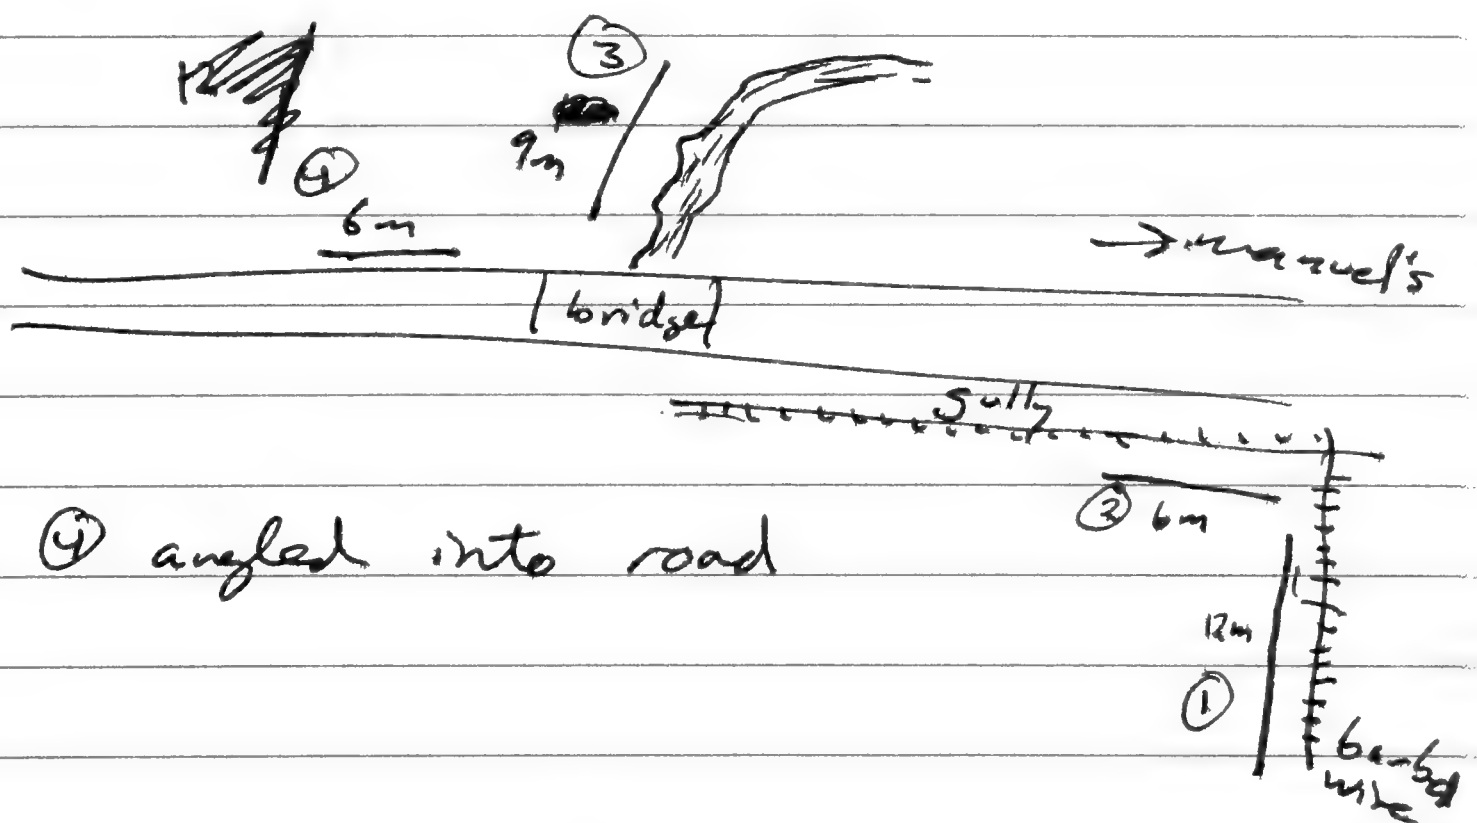 ③
9m
④
6m
→ manuel's
bridge
gully
② 6m
④ angled into road
12m
①
barbed
wire